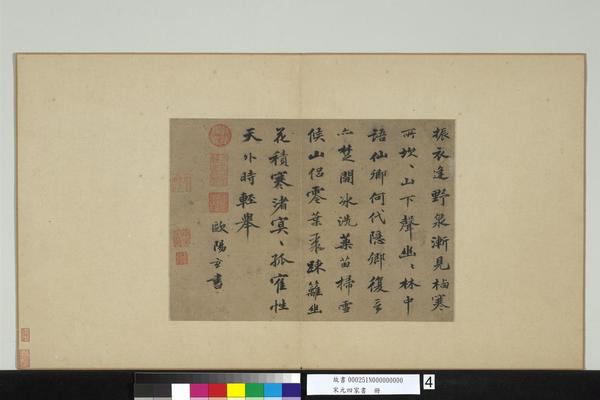 振衣逢野泉漸見栢寒
所坎〻山下聲幽〻林中
語仙鄉何代隱鄉復言
亦楚開冰洗藥苗掃雪
候山侶零葉聚踈籬幽
花積寒渚冥〻孤隺性
天外時輕舉
歐陽玄書
故書 000251N000000000
宋元四家書 冊
4